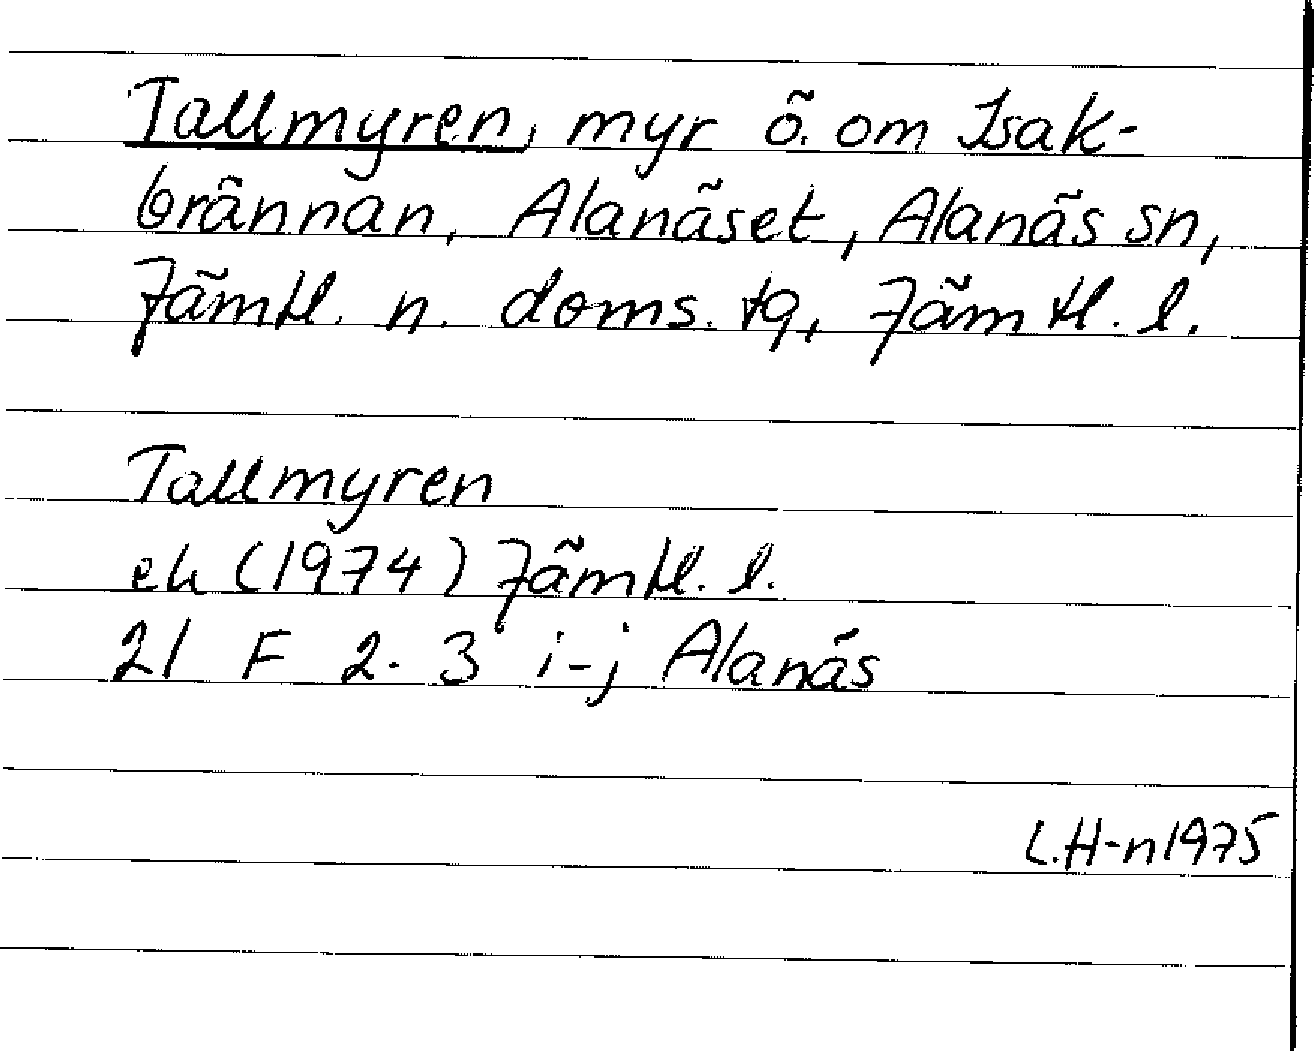 Tallmyren, myr ö. om Isak-
brännan, Alanäset, Alanäs sn,
Jämtl. n. doms. tg, Jämtl. l.
Tallmyren
ek (1974) Jämtl. l.
21 F 2-3 i-j Alanäs
L.H-n 1975